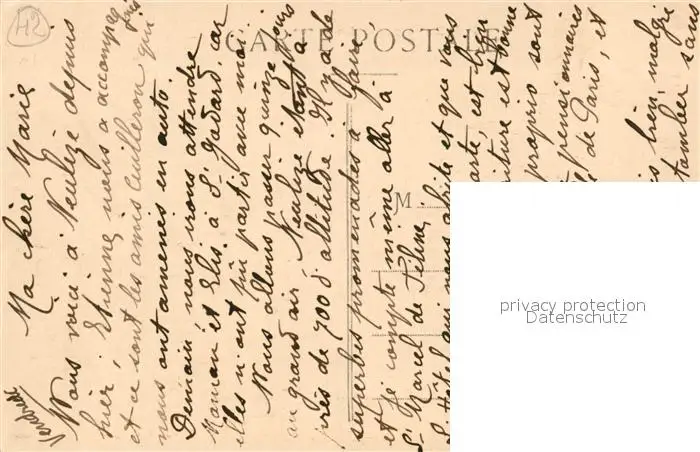 42
CARTE POSTALE
M
Vendredi
Ma chère Marie
Nous voici à Neulize depuis
hier, Etienne nous a accompagnés
et ce sont les amis Cuilleron qui
nous ont amenés en auto.
Demain nous irons attendre
Maman et Elis à St Godard, car
elles n'ont pu partir avec moi.
Nous allons passer quinze jours
au grand air, Neulize étant à
près de 700 d'altitude. Il y a de
superbes promenades à faire,
et je compte même aller à
St Marcel de Félines.
L'Hôtel qui nous abrite et que vous
carte, est bien
est bonne
proprio sont
pensionnaires
de Paris, et
bien, malgré
tomber sans
privacy protection
Datenschutz